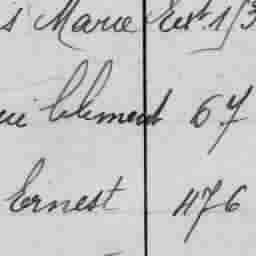 s Marie Est. 1/3
ui Clement 67
Ernest 476